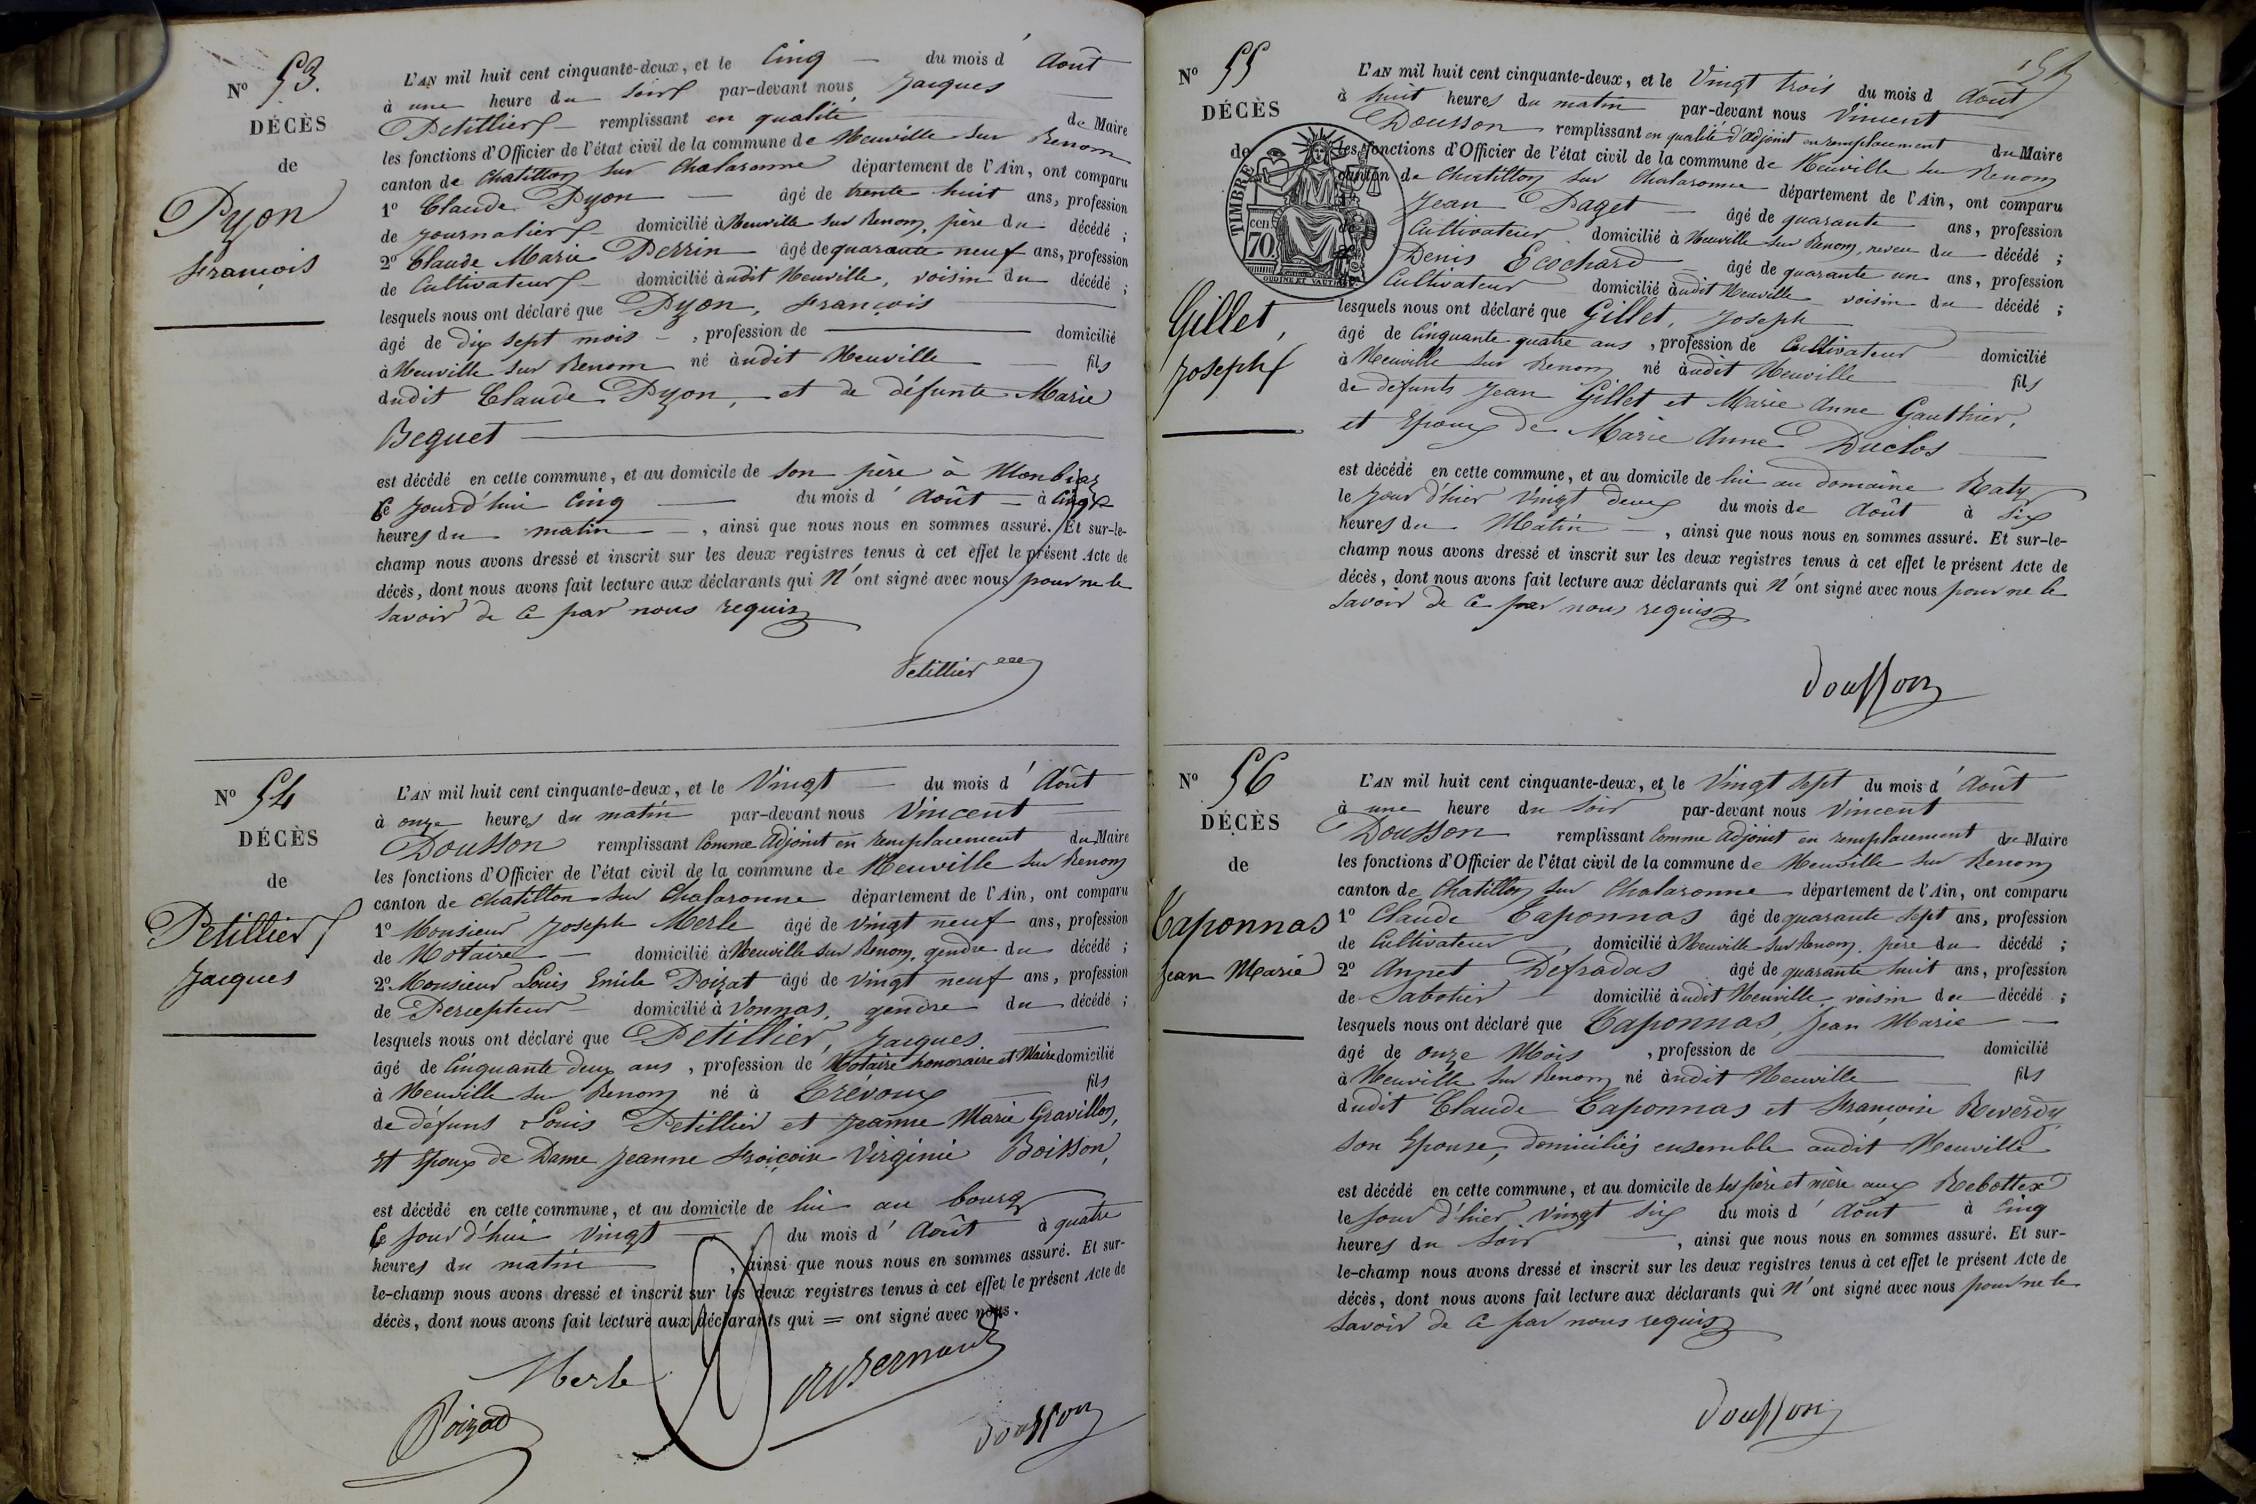 N° 53.
DÉCÈS
de
Pyon
François
L'AN mil huit cent cinquante-deux, et le Cinq du mois d'Août
à une heure du soir par-devant nous Jacques
Petillier remplissant en qualité de Maire
les fonctions d'Officier de l'état civil de la commune de Neuville sur Renom
canton de Chatillon sur Chalaronne département de l'Ain, ont comparu
1° Claude Pyon âgé de trente huit ans, profession
de journalier domicilié à Neuville sur Renom, père du décédé ;
2° Claude Marie Perrin âgé de quarante neuf ans, profession
de Cultivateur domicilié audit Neuville, voisin du décédé ;
lesquels nous ont déclaré que Pyon, François
âgé de dix sept mois , profession de domicilié
à Neuville sur Renom né audit Neuville fils
dudit Claude Pyon, et de défunte Marie
Beguet
est décédé en cette commune, et au domicile de son père à
Ce jourd'hui Cinq du mois d'Août à Cinq
heures du matin , ainsi que nous nous en sommes assuré. Et sur-le-
champ nous avons dressé et inscrit sur les deux registres tenus à cet effet le présent Acte de
décès, dont nous avons fait lecture aux déclarants qui n'ont signé avec nous pour ne le
savoir de ce par nous requis
Petillier
N° 54
DÉCÈS
de
Petillier
Jacques
L'AN mil huit cent cinquante-deux, et le Vingt du mois d'Août
à onze heures du matin par-devant nous Vincent
Dousson remplissant Comme adjoint en remplacement du Maire
les fonctions d'Officier de l'état civil de la commune de Neuville sur Renom
canton de Chatillon sur Chalaronne département de l'Ain, ont comparu
1° Monsieur Joseph Merle âgé de vingt neuf ans, profession
de Notaire domicilié à Neuville sur Renom, gendre du décédé ;
2° Monsieur Louis Emile Poizat âgé de vingt neuf ans, profession
de Percepteur domicilié à Vonnas, gendre du décédé ;
lesquels nous ont déclaré que Petillier, Jacques
âgé de Cinquante deux ans , profession de Notaire honoraire et Maire domicilié
à Neuville sur Renom né à Trévoux fils
de défuns Louis Petillier et Jeanne Marie Gravillon,
et Epoux de Dame Jeanne Virginie Boisson,
est décédé en cette commune, et au domicile de lui au bourg
Ce jour d'hui Vingt du mois d'Août à quatre
heures du matin , ainsi que nous nous en sommes assuré. Et sur-
le-champ nous avons dressé et inscrit sur les deux registres tenus à cet effet le présent Acte de
décès, dont nous avons fait lecture aux déclarants qui = ont signé avec nous.
Merle
Poizad
Dousson
N° 55
DÉCÈS
de
TIMBRE
70.
cen
Gillet,
Joseph
L'AN mil huit cent cinquante-deux, et le Vingt trois du mois d Août
à huit heures du matin par-devant nous Vincent
Dousson remplissant en qualité d'adjoint en remplacement du Maire
les fonctions d'Officier de l'état civil de la commune de Neuville sur Renom
canton de Chatillon sur Chalaronne département de l'Ain, ont comparu
Jean Paget âgé de quarante ans, profession
Cultivateur domicilié à Neuville sur Renom, neveu du décédé ;
Denis Ecochard âgé de quarante un ans, profession
Cultivateur domicilié audit Neuville voisin du décédé ;
lesquels nous ont déclaré que Gillet, Joseph
âgé de Cinquante quatre ans , profession de Cultivateur domicilié
à Neuville sur Renom né audit Neuville fils
de défunts Jean Gillet et Marie Anne Gauthier,
et Epoux de Marie Anne Duclos
est décédé en cette commune, et au domicile de lui au domaine Raty
le jour d'hier Vingt deux du mois de Août à Six
heures du Matin , ainsi que nous nous en sommes assuré. Et sur-le-
champ nous avons dressé et inscrit sur les deux registres tenus à cet effet le présent Acte de
décès, dont nous avons fait lecture aux déclarants qui n'ont signé avec nous pour ne le
savoir de ce par nous requis
Dousson
N° 56
DÉCÈS
de
Taponnas
Jean Marie
L'AN mil huit cent cinquante-deux, et le Vingt sept du mois d'Août
à une heure du soir par-devant nous Vincent
Dousson remplissant Comme adjoint en remplacement du Maire
les fonctions d'Officier de l'état civil de la commune de Neuville sur Renom
canton de Chatillon sur Chalaronne département de l'Ain, ont comparu
1° Claude Taponnas âgé de quarante sept ans, profession
de Cultivateur , domicilié à Neuville sur Renom. père du décédé ;
2° Annet Defradas âgé de quarante huit ans, profession
de Sabotier domicilié audit Neuville voisin du décédé ;
lesquels nous ont déclaré que Taponnas, Jean Marie
âgé de onze Mois , profession de domicilié
à Neuville sur Renom né audit Neuville fils
dudit Claude Taponnas et Françoise Reverdy
son Epouse, domiciliés ensemble audit Neuville
est décédé en cette commune, et au domicile de ses père et mère aux Rebottex
le jour d'hier vingt six du mois d'Août à Cinq
heures du soir , ainsi que nous nous en sommes assuré. Et sur-
le-champ nous avons dressé et inscrit sur les deux registres tenus à cet effet le présent Acte de
décès, dont nous avons fait lecture aux déclarants qui n'ont signé avec nous pour ne le
savoir de ce par nous requis
Dousson